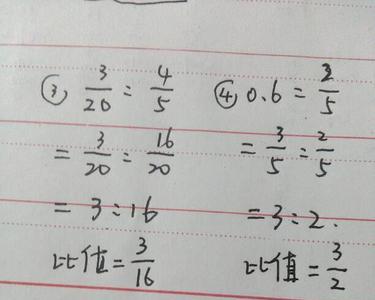 ③ 3/20 : 4/5
= 3/20 : 16/20
= 3 : 16
比值 = 3/16
④ 0.6 = 2/5
= 3/5 : 2/5
= 3 : 2.
比值 = 3/2